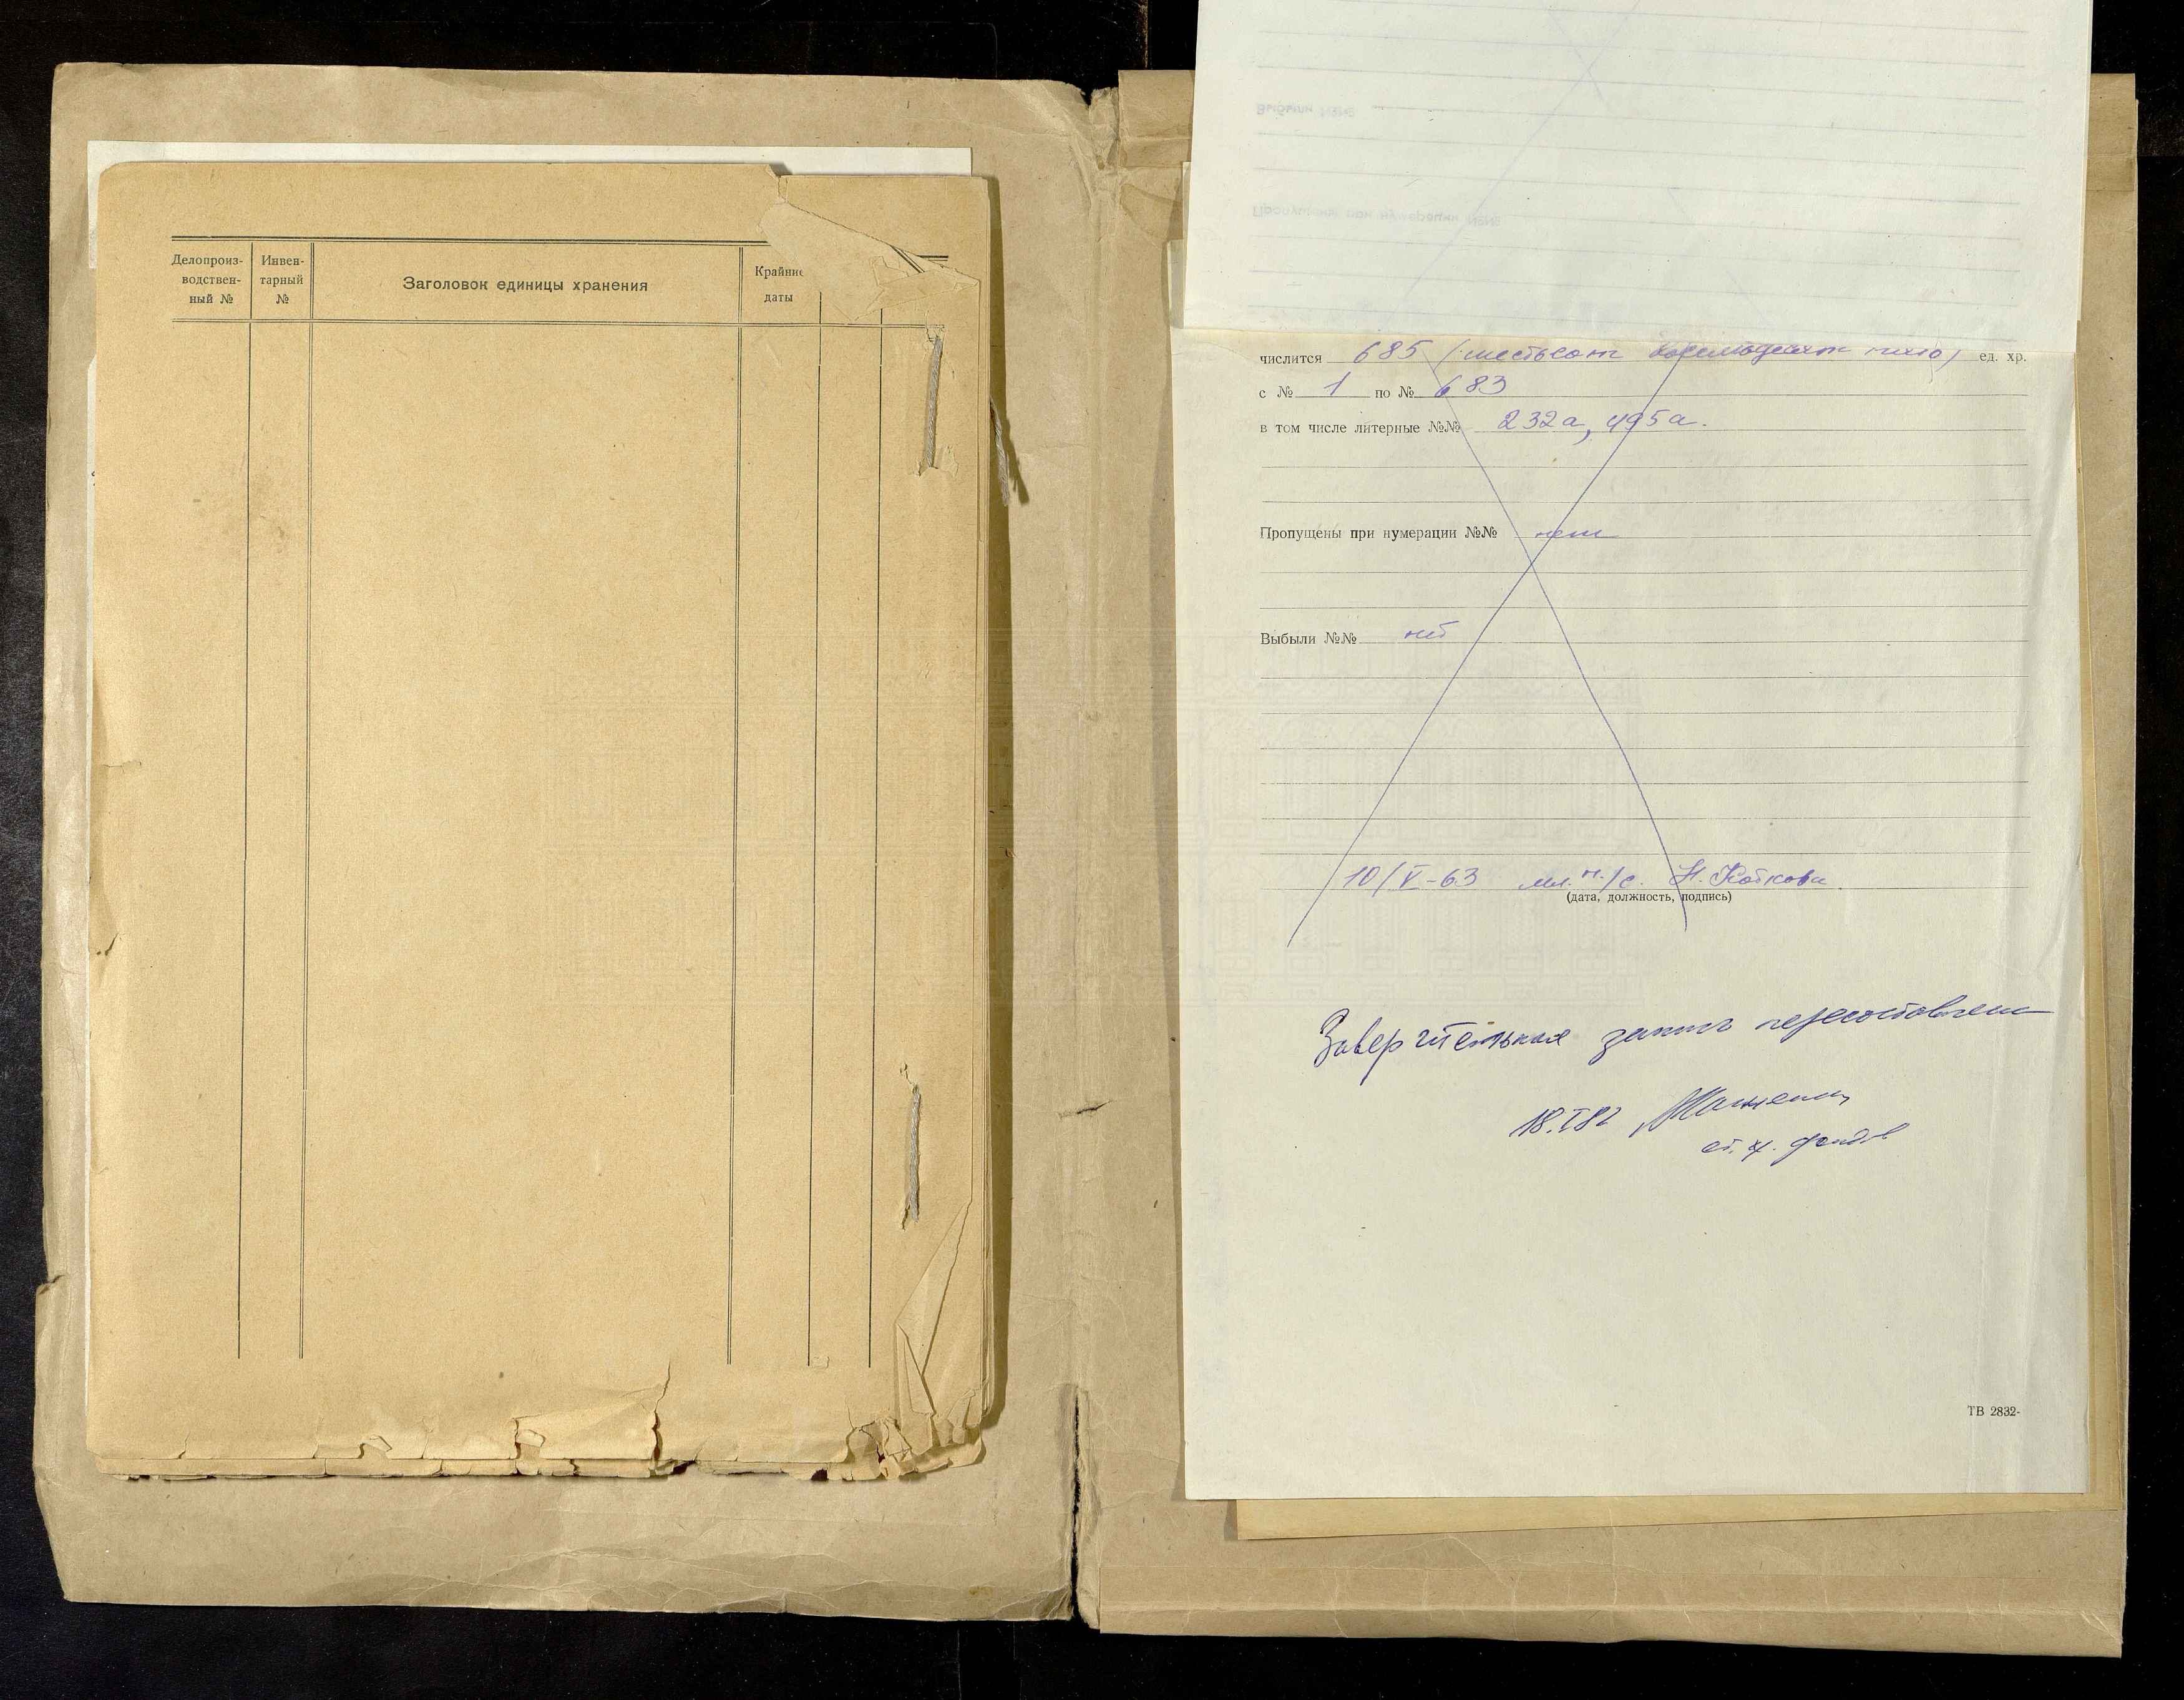 Делопроиз-
водствен-
ный №
Инвен-
тарный
№
Заголовок единицы хранения
Крайние
даты
Выбыли №№
Пропущены при нумерации №№
числится 685 (шестьсот восемьдесят пять) ед. хр.
с № 1 по № 683
в том числе литерные №№ 232а, 495а.
Пропущены при нумерации №№ нет
Выбыли №№ нет
10/V-63 мл. н./с. Н. Коткова
(дата, должность, подпись)
Заверительная запись пересоставлена
18.I82
ст. х. фондов
ТВ 2832-